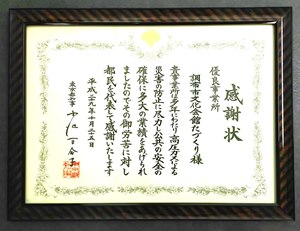 感謝状
優良事業所
調布市文化会館たづくり様
貴事業所は多年にわたり高圧ガスによる
災害の防止に尽力し公共の安全の
確保に多大の業績をあげられ
ましたのでその御労苦に対し
都民を代表して感謝いたします
平成二十九年十月二十五日
東京都知事 小池百合子